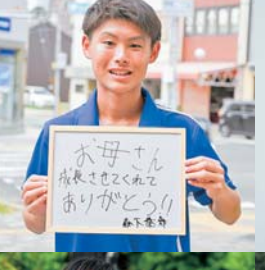 お母さん
成長させてくれて
ありがとう!!
森下